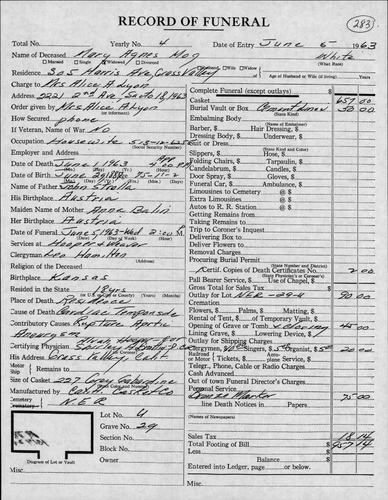 RECORD OF FUNERAL
283
Total No. Yearly No. 4 Date of Entry June 5 1963
Name of Deceased Mary Agnes Mog White
Married Single Widowed Divorced (What Race)
Residence 305 Harris Ave, Grass Valley Husband Wife Widow
Age of Husband or Wife (if living)
Charge to Mrs Alice A Lyon
Address 2221 2nd Ave Sacto 18, 1963
Order given by Mrs Alice A Lyon
How Secured phone
If Veteran, Name of War No
Occupation Housewife
(Social Security Number)
Employer and Address
Date of Death June 1 1963 4:00 PM
Date of Birth June 75-11-2
Name of Father John Strolla
His Birthplace Austria
Maiden Name of Mother Anna Balin
Her Birthplace Austria
Date of Funeral June 5, 1963 Wed 2:00
Services at Hooper & Weaver
Clergyman Leo Hamilton
Religion of the Deceased
Birthplace Kansas
Resided in the State 18 yrs
Place of Death Residence
Cause of Death Cardiac Tamponade
Contributory Causes Rupture Aortic
Aneurysm
Certifying Physician
His Address Grass Valley Calif
Motor Ship Remains to
Size of Casket 227 Gray
Manufactured by Calif. Casket Co
Cemetery N.E.R
Lot No. 4
Grave No. 29
Section No.
Block No.
Owner
Diagram of Lot or Vault
Misc.
Complete Funeral (except outlays) $
Casket 657 00
Burial Vault or Box Cement liner 50 00
(State Kind)
Embalming Body
(Name of Embalmer)
Barber, $ Hair Dressing, $
Dressing Body, $ Underwear, $
Suit or Dress
(State Kind and Color)
Slippers, $ Hose, $
Folding Chairs, $ Tarpaulin, $
Candelabrum, $ Candles, $
Door Spray, $ Gloves, $
Funeral Car, $ Ambulance, $
Limousines to Cemetery @ $
Extra Limousines @ $
Autos to R. R. Station @ $
Getting Remains from
Taking Remains to
Trip to Coroner's Inquest
Delivering Box to
Deliver Flowers to
Removal Charges
Procuring Burial Permit
(State Number and District)
Certif. Copies of Death Certificates No. 2 00
Pall Bearer Service Use of Chapel, $
Gross Total for Sales Tax $
Outlay for Lot NER-29-4 90 00
Flowers, $ Palms, $ Matting, $
Rental of Tent, $ of Temporary Vault, $
Opening of Grave or Tomb 45 00
Lining Grave, $ Lowering Device, $
Outlay for Shipping Charges
Clergymen, $ Singers, $ 20 00
Railroad or Motor Tickets, $ Aeroplane Service, $
Telegr., Phone, Cable or Radio Charges
Cash Advanced
Out of town Funeral Director's Charges $
Personal Service
Bronze Marker 75 00
line Death Notices in Papers $
(Names of Newspapers)
Sales Tax 18 14
Total Footing of Bill $ 957 14
Less $
Balance $
Entered into Ledger, page or below.
Misc.